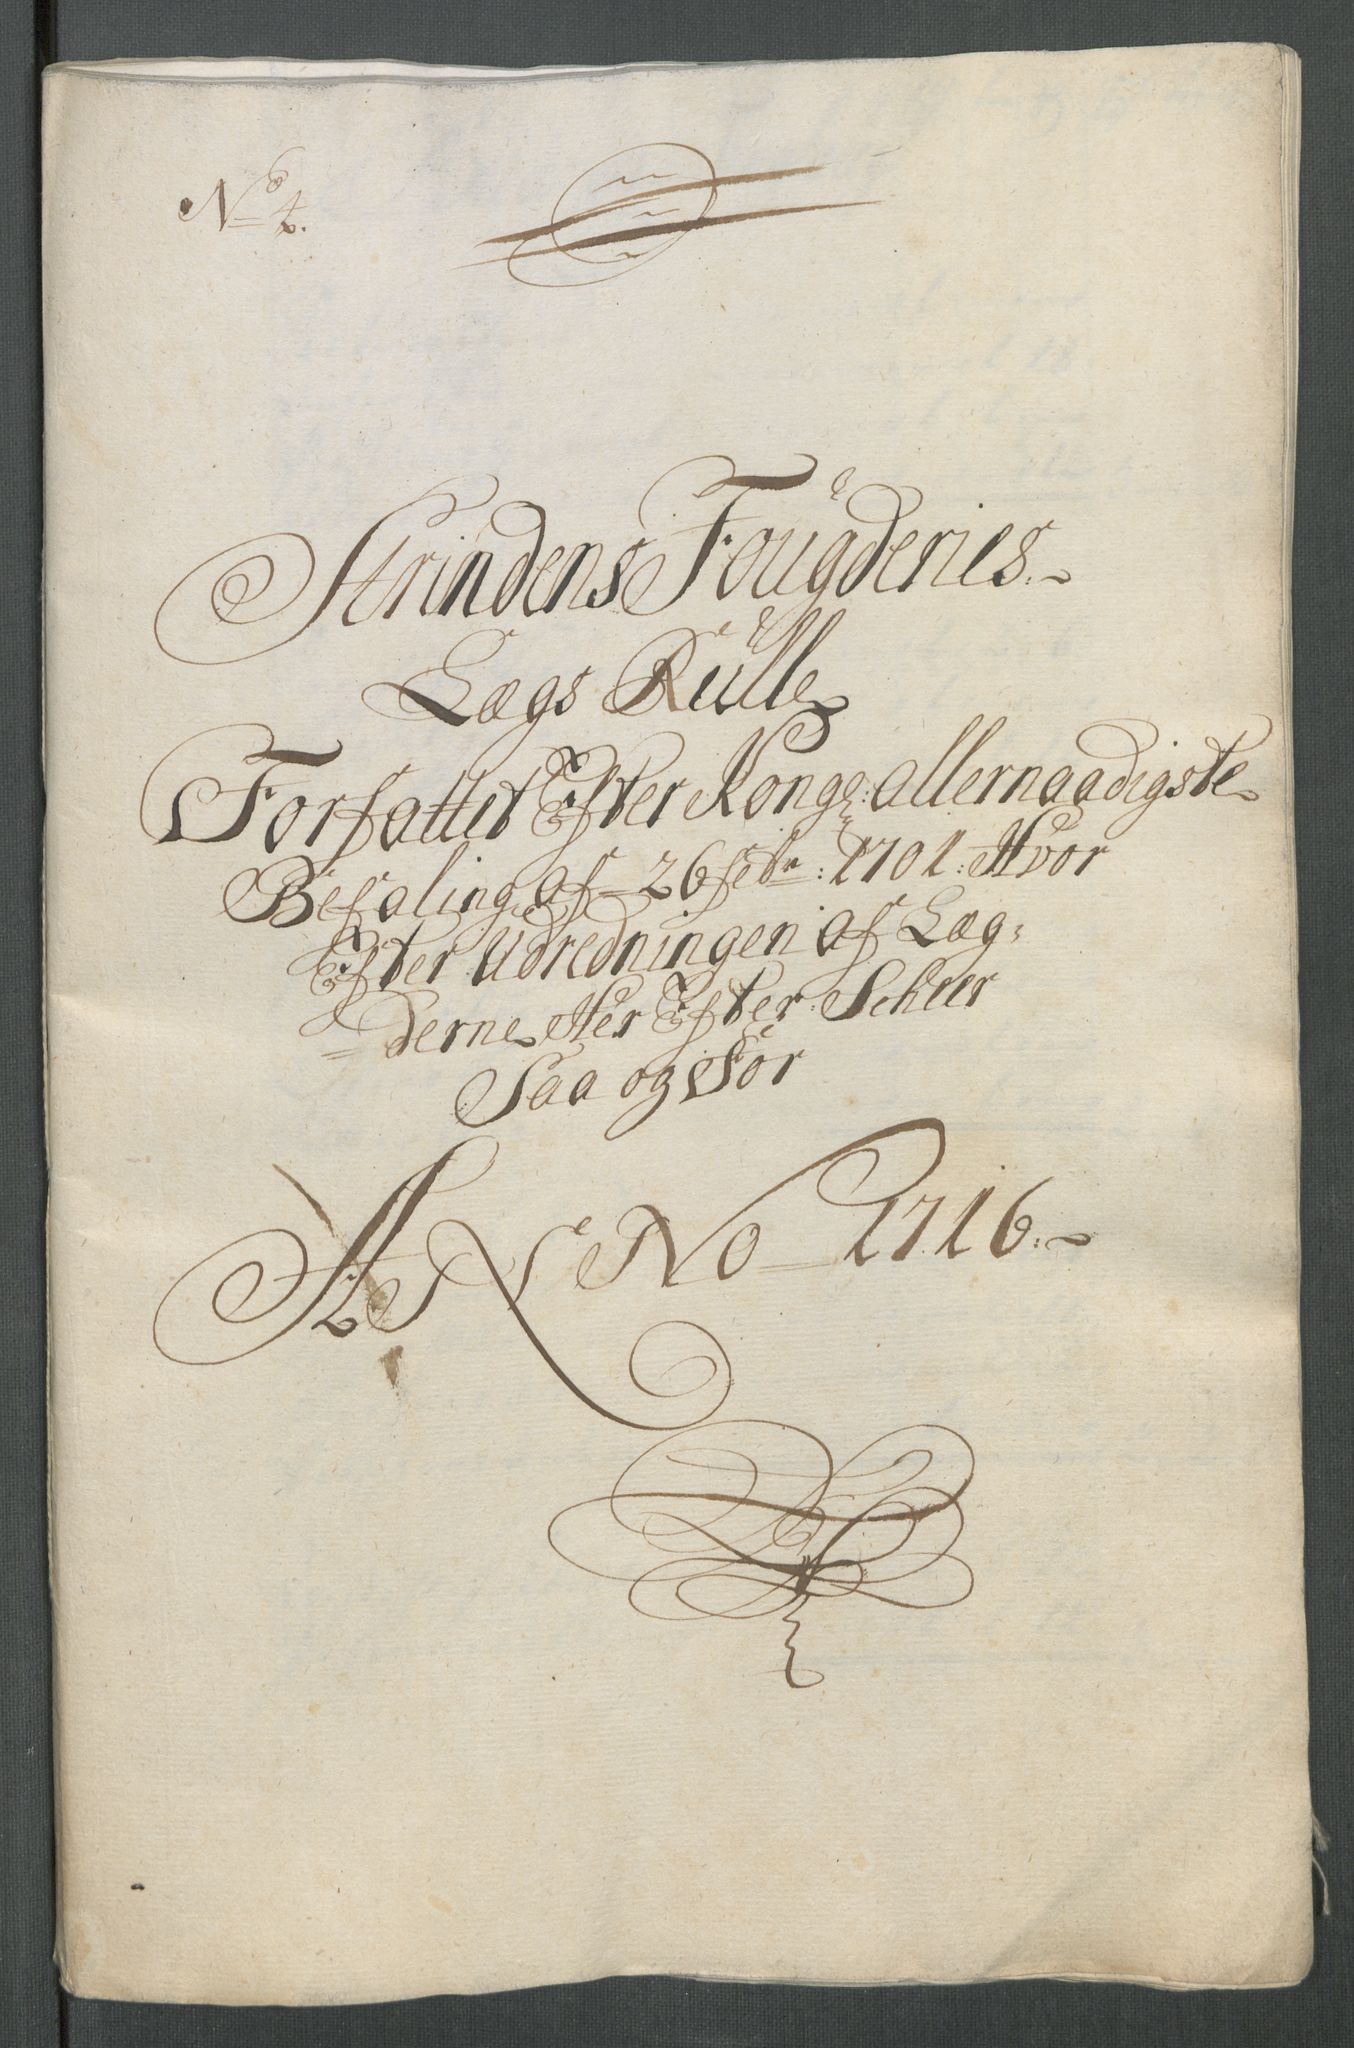 No 4.
Strindens Fougderies
Lægs Rulle
Forfattet Efter Konge: allernaadigste
Befaling af 26 febr: 1701: Hvor
Efter Udredningen af Læg-
derne Her Efter Scheer
Saa og For
ANNo 1716.